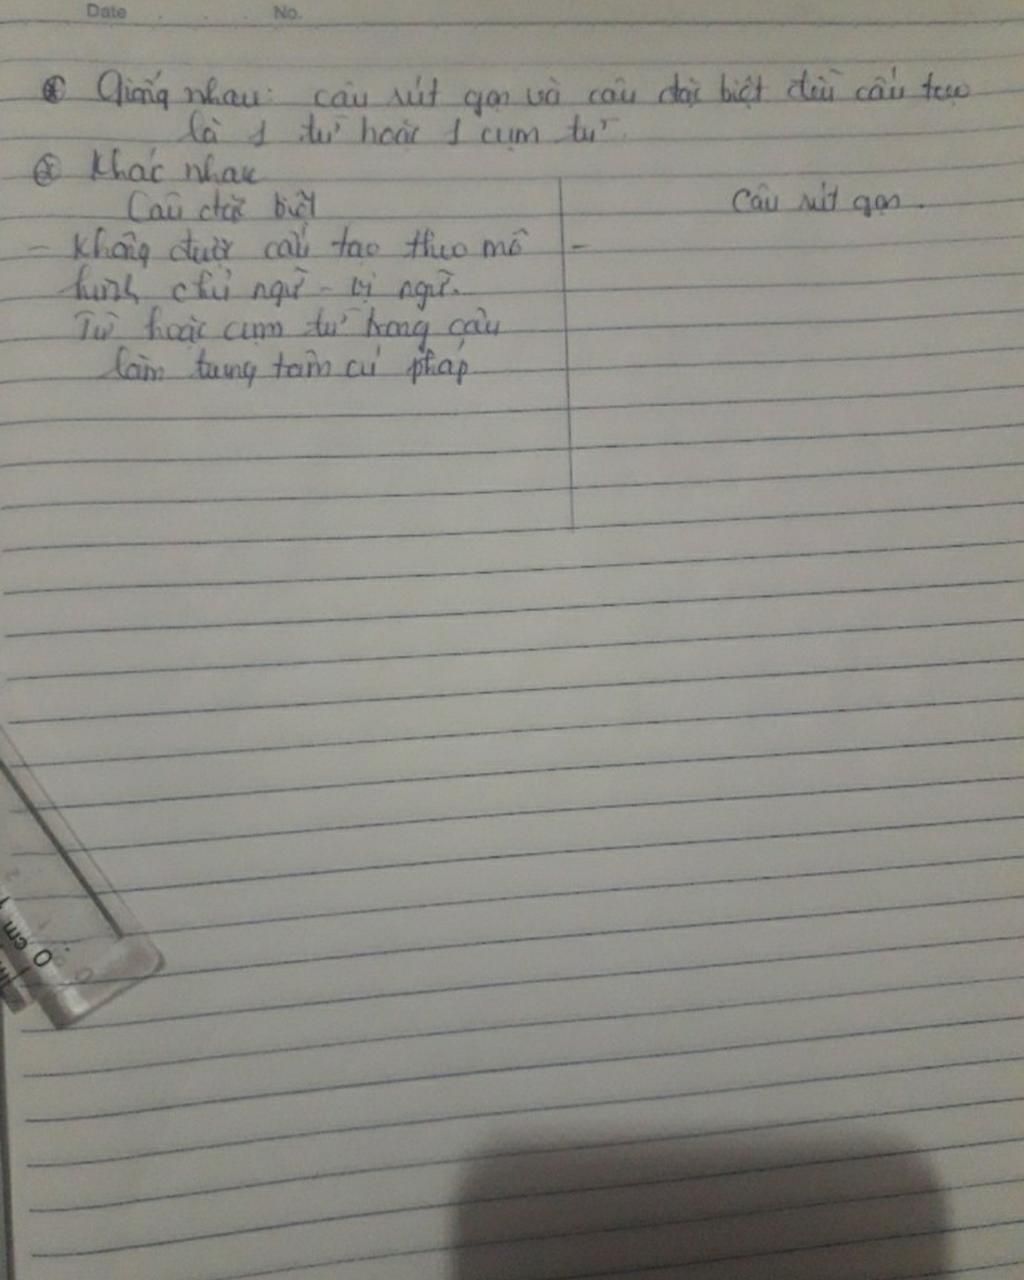 Date No.
Giống nhau: câu rút gọn và câu đặc biệt đều cấu tạo
là 1 từ hoặc 1 cụm từ.
Khác nhau
Câu đặc biệt
Câu rút gọn.
- Không được cấu tạo theo mô -
hình chủ ngữ - vị ngữ.
Từ hoặc cụm từ trong câu
làm trung tâm cú pháp
0 cm 1